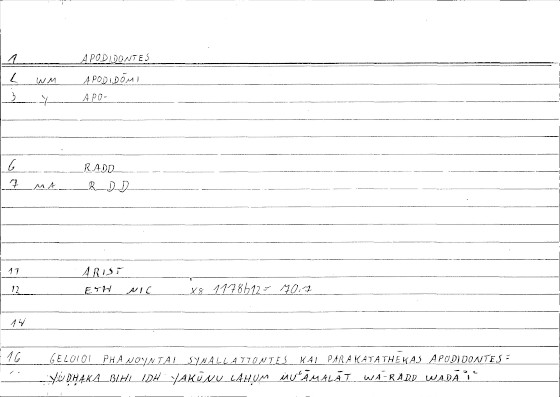 1 APODIDONTES
2 WM APODIDŌMI
3 Y APO-
6 RADD
7 MA R D D
11 ARIST
12 ETH NIC X8 1178b12 = 70.7
14
16 GELOIOI PHANOYNTAI SYNALLATTONTES KAI PARAKATATHĒKAS APODIDONTES =
YŪḌḤAKA BIHI IDH YAKŪNU LAHUM MUʿĀMALĀT WĀ-RADD WADĀʾIʿ